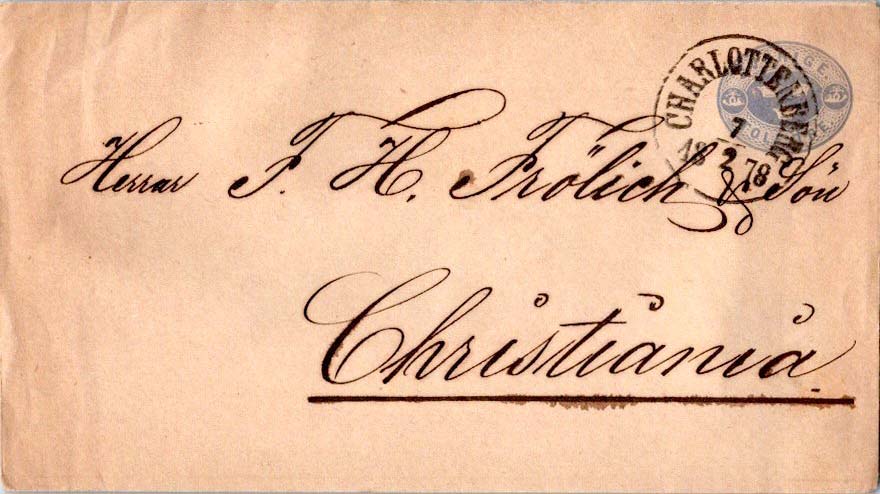 CHARLOTTENBERG
7
18 2 78
Herrar F. H. Frölich & Sön
Christiania